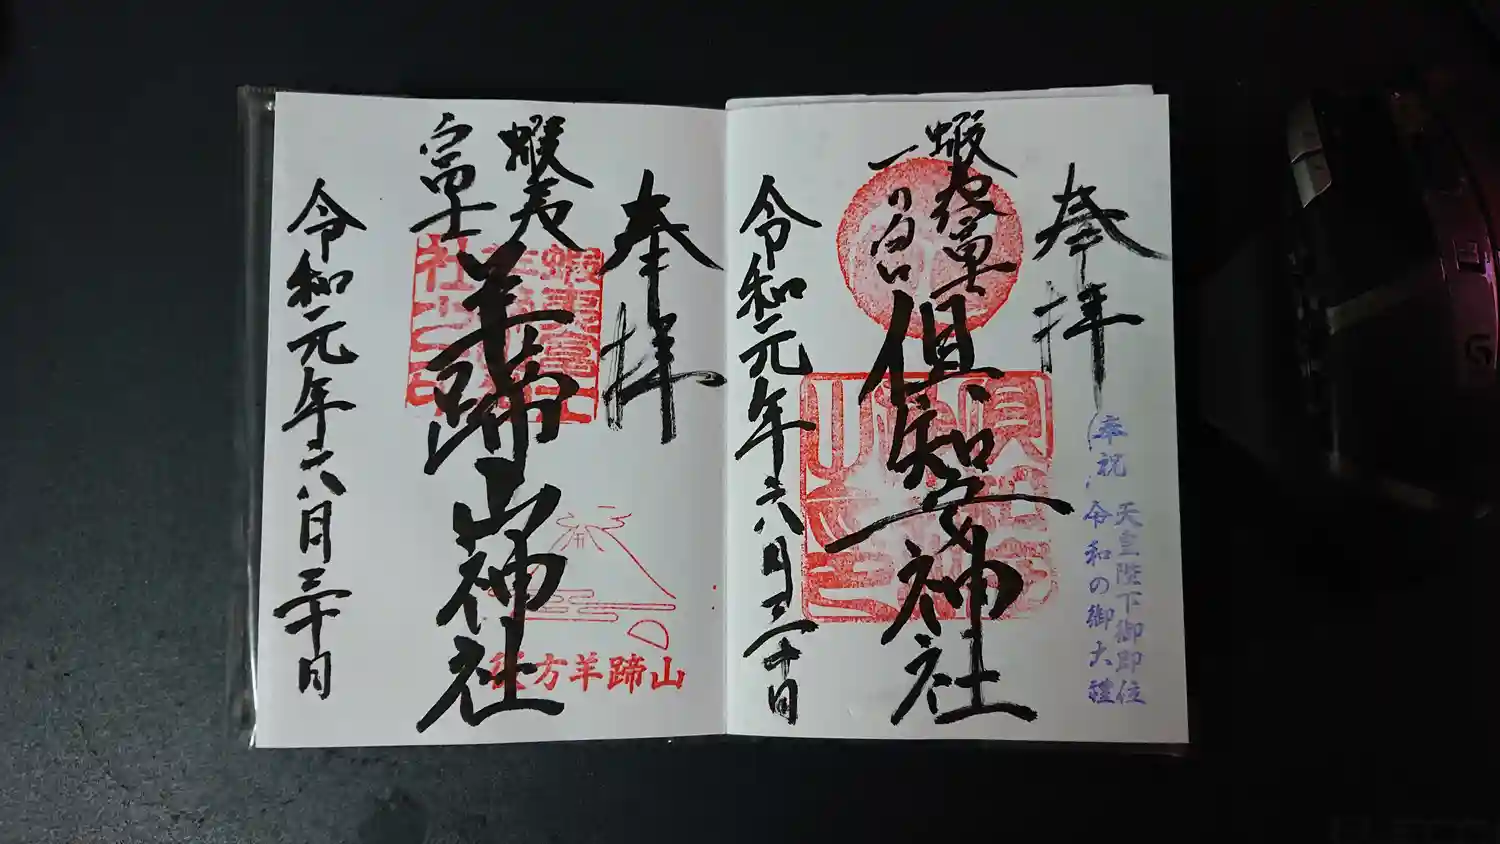 奉拝
(奉祝 天皇陛下御即位
令和の御大禮
蝦夷富士
一の宮
倶知安神社
令和元年六月三十日
奉拝
蝦夷
富士
羊蹄山神社
山蹄羊方後
令和元年六月三十日